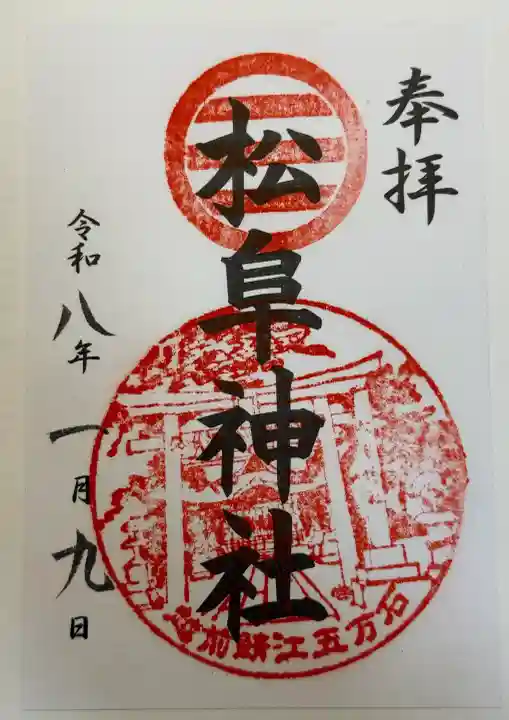 奉拝
松阜神社
令和八年一月九日
越前鯖江五万石